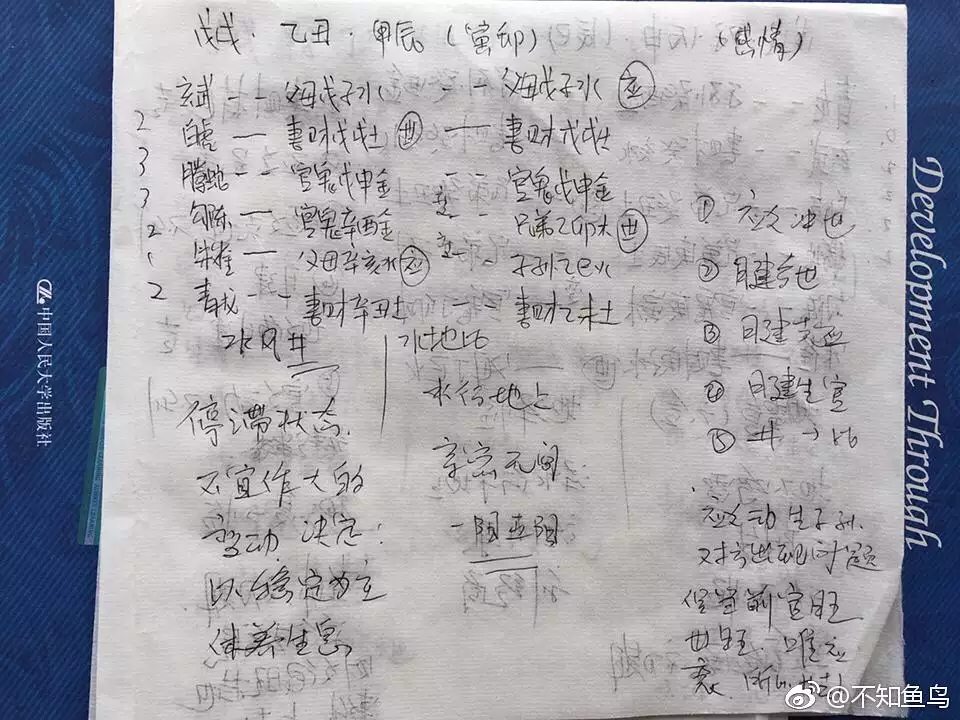 戊戌·乙丑·甲辰(寅卯) (感情)
玄武 -- 父母戊子水 -- 父母戊子水 应
2 白虎 — 妻财戊戌土 世 — 妻财戊戌土
3 腾蛇 -- 官鬼戊申金 -- 官鬼戊申金
3 勾陈 — 官鬼辛酉金 变 -- 兄弟乙卯木 世
2 朱雀 — 父母辛亥水 应 变 -- 子孙乙巳火
2 青龙 -- 妻财辛丑土 妻财乙未土
水风井
水地比
停滞状态
不宜作大的
变动 决定:
以稳定为主
休养生息
水行地上
亲密无间
一阳五阴
① 应爻冲世
② 日建合世
③ 日建克应
④ 日建生官
⑤ 井→比
应爻动生子孙
官旺
世旺 唯应
衰
中国人民大学出版社
Development Through
@不知鱼鸟